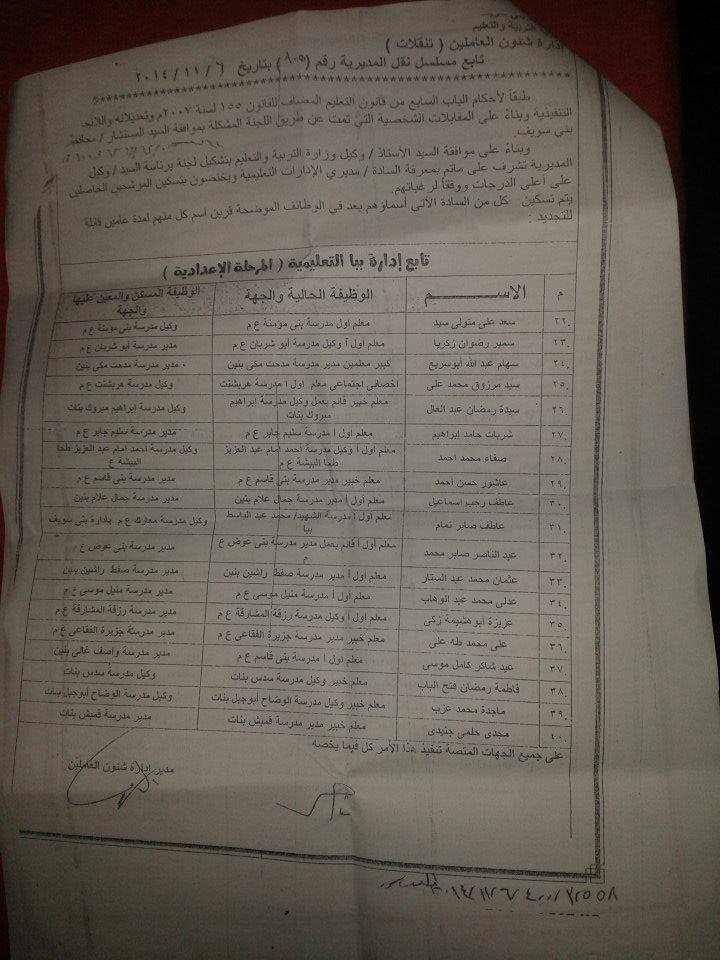 التربية والتعليم
إدارة شئون العاملين ( تنقلات )
تابع مسلسل نقل المديرية رقم (٩٠٥) بتاريخ ٦ / ١١ / ٢٠١٤
طبقاً لأحكام الباب السابع من قانون التعليم المضاف للقانون ١٥٥ لسنة ٢٠٠٧م وتعديلاته واللائحة
التنفيذية وبناءً على المقابلات الشخصية التي تمت عن طريق اللجنة المشكلة بموافقة السيد المستشار / محافظ
بني سويف
وبناءً على موافقة السيد الأستاذ / وكيل وزارة التربية والتعليم بتشكيل لجنة برئاسة السيد / وكيل
المديرية تشرف على ماتم بمعرفة السادة / مديري الإدارات التعليمية ويختصون بتسكين المرشحين الحاصلين
على أعلى الدرجات ووفقاً لرغباتهم.
يتم تسكين كل من السادة الأتى أسماؤهم بعد في الوظائف الموضحة قرين اسم كل منهم لمدة عامين قابلة
للتجديد :
تابع إدارة ببا التعليمية ( المرحلة الإعدادية )
م الاســـــم الوظيفة الحالية والجهة الوظيفة المسكن والمعين عليها والجهة
٢٢. سعد على متولى سيد معلم اول مدرسة بنى مؤمنة ع م وكيل مدرسة بنى مؤمنة ع م
٢٣. سمير رضوان زكريا معلم اول أ وكيل مدرسة أبو شربان ع م مدير مدرسة أبو شربان ع م
٢٤. سهام عبد الله أبوسريع كبير معلمين مدير مدرسة مدحت مكى بنين مدير مدرسة مدحت مكى بنين
٢٥. سيد مرزوق محمد على اخصائى اجتماعى معلم اول أ مدرسة هربشنت ع م وكيل مدرسة هربشنت ع م
٢٦. سيدة رمضان عبد العال معلم خبير قائم بعمل وكيل مدرسة إبراهيم مبروك بنات وكيل مدرسة إبراهيم مبروك بنات
٢٧. شربات حامد إبراهيم معلم اول أ مدرسة سليم جابر ع م مدير مدرسة سليم جابر ع م
٢٨. صفاء محمد احمد معلم أول أ وكيل مدرسة أحمد امام عبد العزيز طحا البيشة ع م وكيل مدرسة أحمد امام عبد العزيز طحا البيشة ع
٢٩. عاشور حسن أحمد معلم خبير مدير مدرسة بنى قاسم ع م مدير مدرسة بنى قاسم ع م
٣٠. عاطف رجب اسماعيل معلم اول أ مدير مدرسة جمال علام بنين مدير مدرسة جمال علام بنين
٣١. عاطف صابر تمام معلم اول أ مدرسة الشهيد/ محمد عبد الباسط ببا وكيل مدرسة معارك ع م بإدارة بنى سويف
٣٢. عبد الناصر صابر محمد معلم أول أ قائم بعمل مدير مدرسة بنى عوض ع م مدير مدرسة بنى عوض ع
٣٣. عثمان محمد عبد الستار معلم اول أ مدير مدرسة صفط راشين بنين مدير مدرسة صفط راشين بنين
٣٤. عدلى محمد عبد الوهاب معلم اول أ مدرسة منيل موسى ع م مدير مدرسة منيل موسى ع م
٣٥. عزيزة أبوهشيمة زكى معلم اول أ وكيل مدرسة رزقة المشارقة ع م مدير مدرسة رزقة المشارقة ع م
٣٦. على محمد طه على معلم خبير مدير مدرسة جزيرة الفقاعى ع م مدير مدرسة جزيرة الفقاعى ع م
٣٧. عيد شاكر كامل موسى معلم اول أ مدرسة بنى قاسم ع م مدير مدرسة واصف غالى بنين
٣٨. فاطمة رمضان فتح الباب معلم خبير وكيل مدرسة سدس بنات وكيل مدرسة سدس بنات
٣٩. ماجدة محمد عزب معلم خبير وكيل مدرسة الوضاح أبوجبل بنات وكيل مدرسة الوضاح أبوجبل بنات
٤٠. مجدى حلمى جنيدى معلم خبير مدير مدرسة قمبش بنات مدير مدرسة قمبش بنات
على جميع الجهات المتصة تنفيذ هذا الأمر كل فيما يخصه
مدير إدارة شئون العاملين